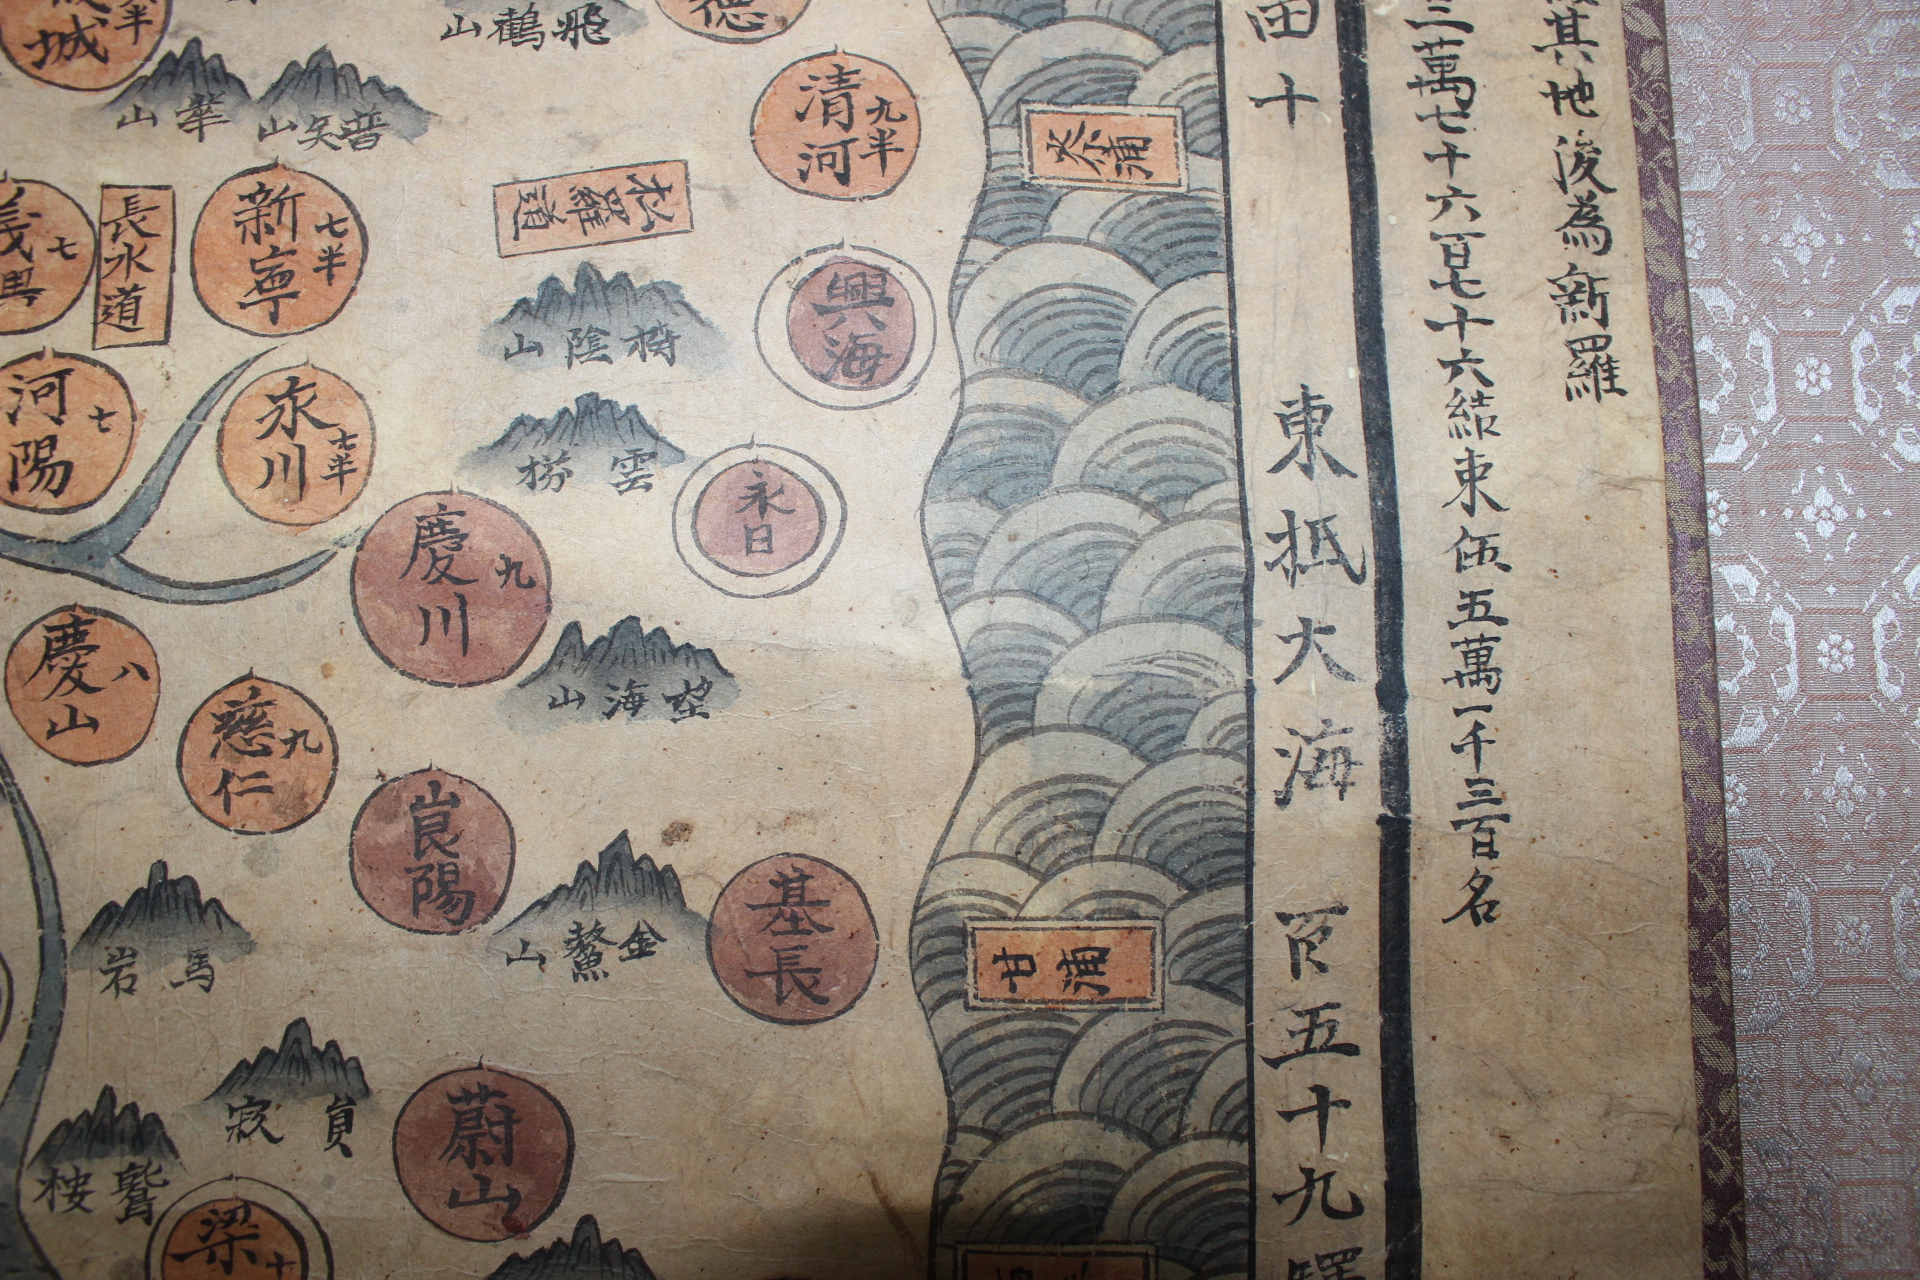 其地後為新羅
三萬七十六百七十六結束伍五萬一千三百名
田十
東抵大海
百五十九驛
德
山鶴飛
城
半
山華
山矢普
清河
九半
松羅道
長水道
新寧
七半
義興
七
興海
山陰樹
河陽
七
永川
七半
雲
永日
慶川
九
慶山
八
慈仁
九
山海望
崑陽
山鰲金
基長
甘浦
岩馬
蔚山
鷲
梁
十